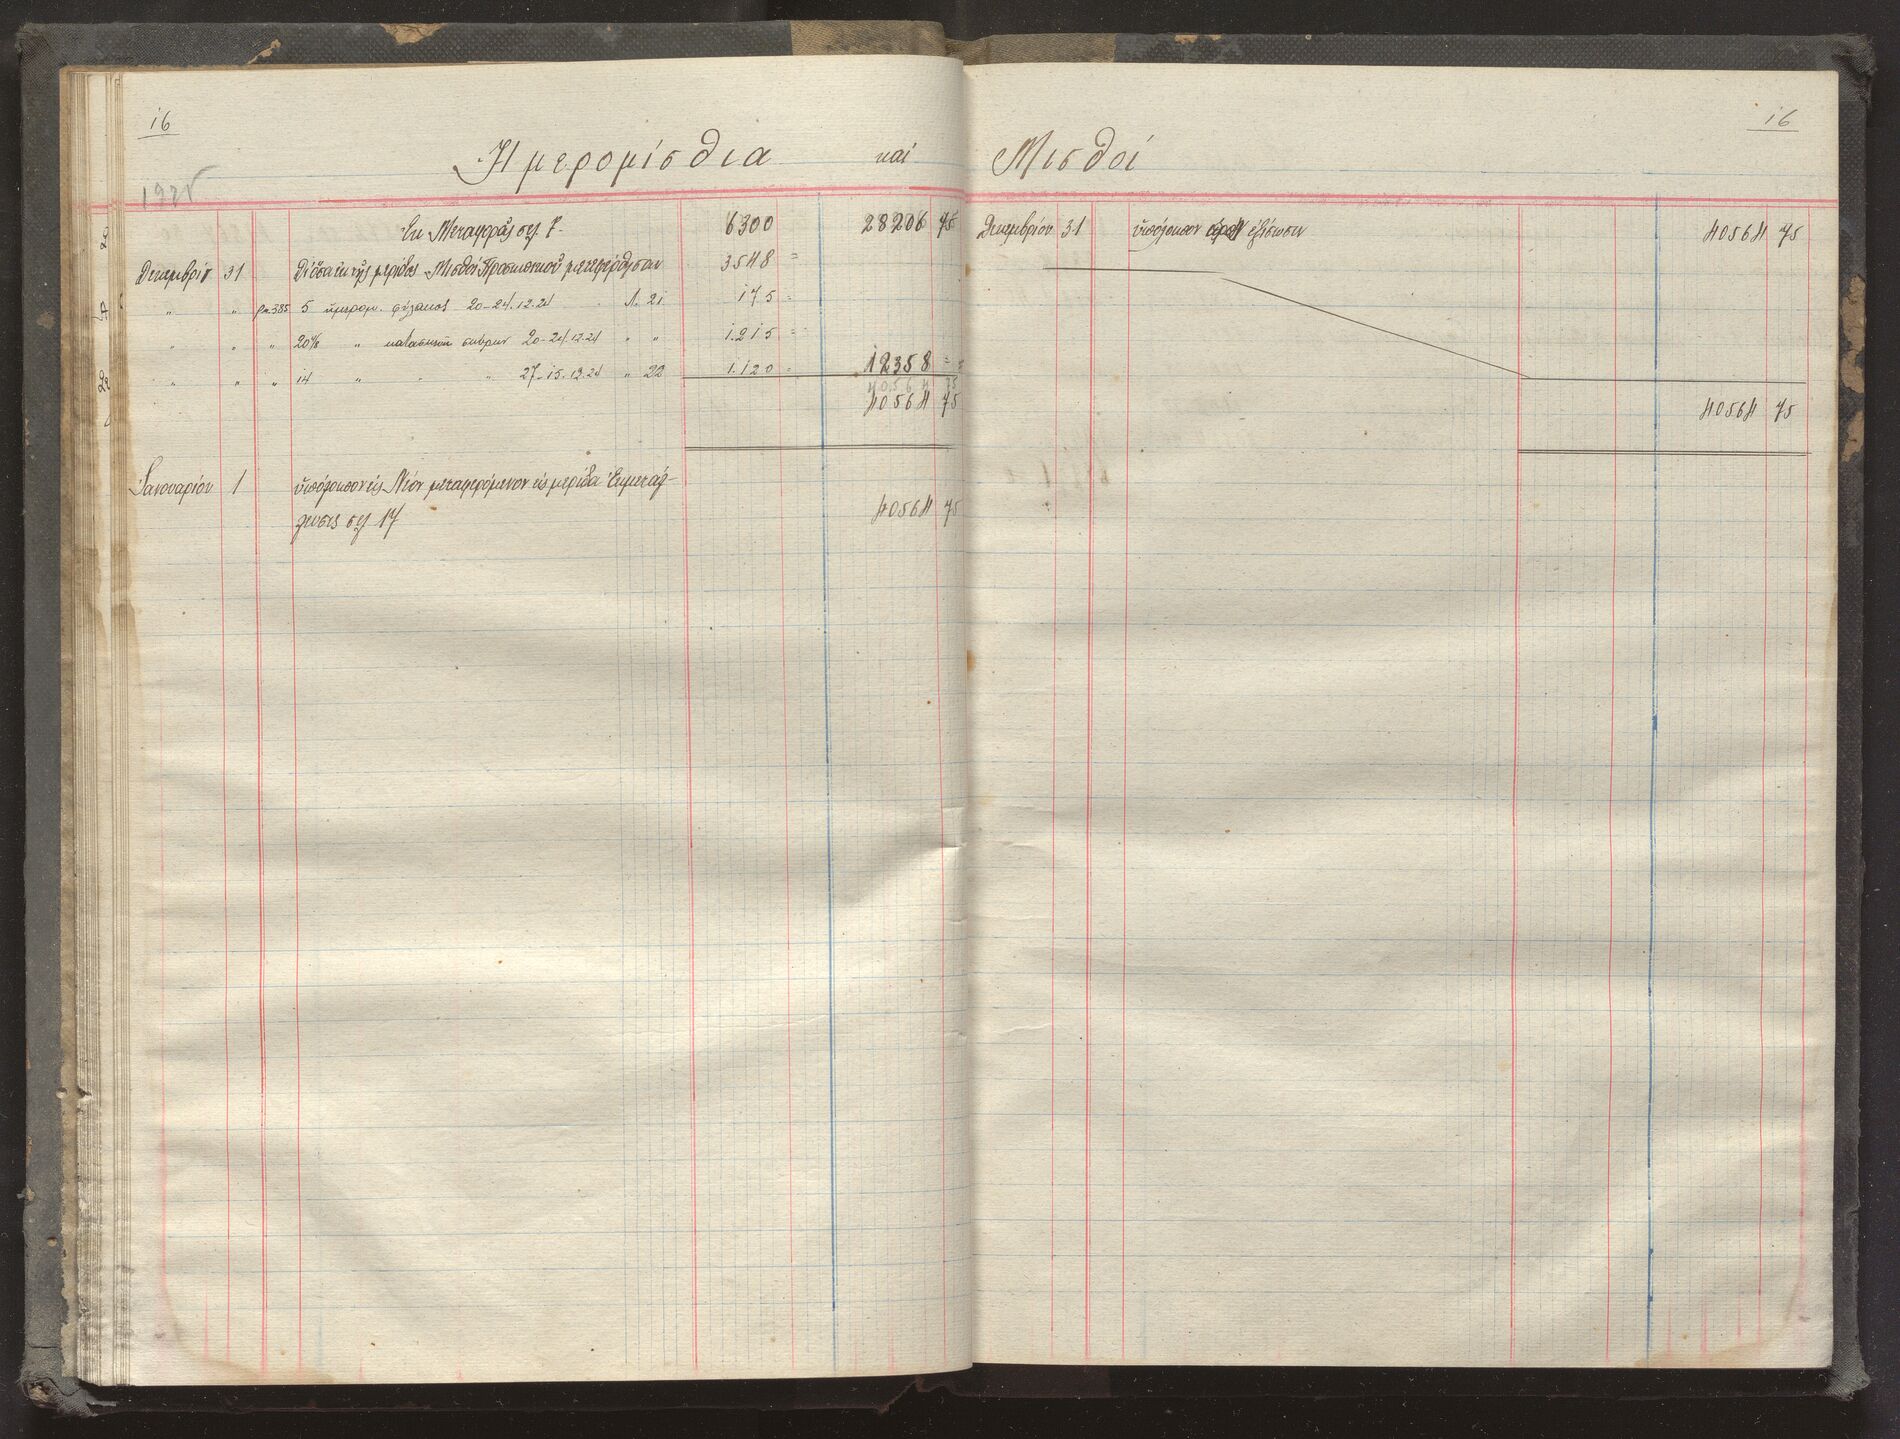 16
16
Ημερομίσθια και Μισθοί
Εκ Μεταφοράς σελ 7. 6300 28206 75
Δεκεμβρίου 31 εκ της μερίδος Μισθοί Προσωπικού μετεφέρθησαν 3548 =
" " 385 5 ημερομ. φύλακος 20-24.12.24 Λ. 21 175 =
" " " 20 4/8 " 20-24.12.24 " " 1.215 =
" " " 14 " " " 27-15.12.24 " 22 1.120 = 12358 =
40564 75
40564 75
Ιανουαρίου 1 υπόλοιπον εις Νέον μεταφερόμενον εις μερίδα Εκμετάλ-
λευσις σελ 17 40564 75
Δεκεμβρίου 31 υπόλοιπον προς εξίσωσιν 40564 75
40564 75